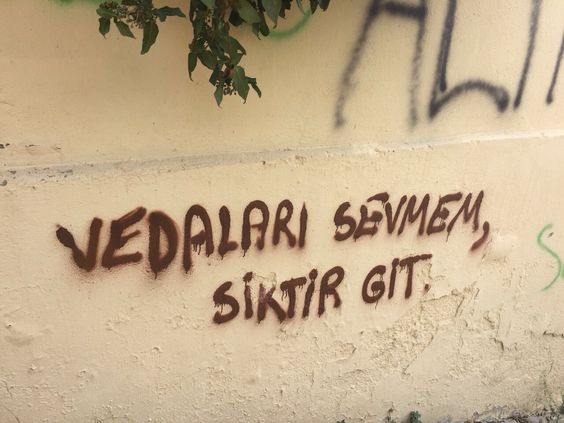 VEDALARI SEVMEM,
SİKTİR GİT.